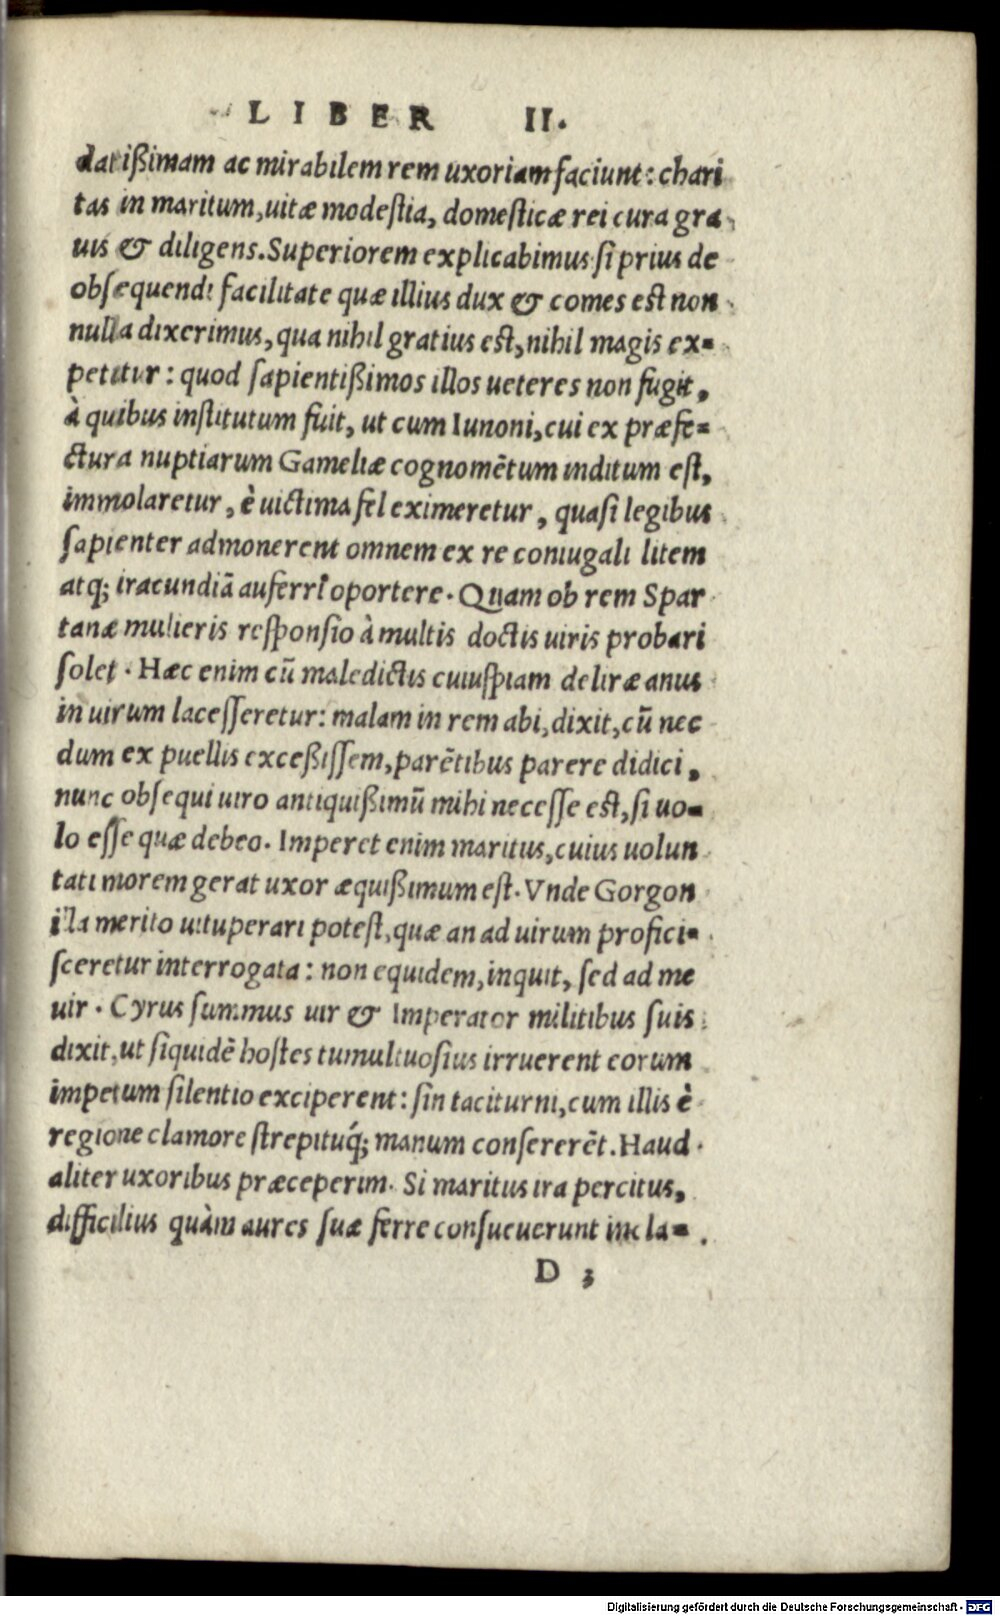 LIBER II.
datißimam ac mirabilem rem uxoriam faciunt: chari
tas in maritum, uitæ modeſtia, domeſticæ rei cura gra
uis & diligens. Superiorem explicabimus ſi prius de
obſequendi facilitate quæ illius dux & comes est non
nulla dixerimus, qua nihil gratius est, nihil magis ex=
petitur: quod ſapientißimos illos ueteres non fugit,
à quibus inſtitutum fuit, ut cum Iunoni, cui ex præfe=
ctura nuptiarum Gameliæ cognomẽtum inditum eſt,
immolaretur, è uictima fel eximeretur, quaſi legibus
ſapienter admonerent omnem ex re coniugali litem
atq; iracundiã auferri oportere. Quam ob rem Spar
tanæ mulieris reſponſio à multis doctis uiris probari
ſolet. Hæc enim cũ maledictis cuiuſpiam deliræ anus
in uirum laceſſeretur: malam in rem abi, dixit, cũ nec
dum ex puellis exceßiſſem, parẽtibus parere didici,
nunc obſequi uiro antiquißimũ mihi neceſſe est, ſi uo=
lo eſſe quæ debeo. Imperet enim maritus, cuius uolun
tati morem gerat uxor æquißimum eſt. Vnde Gorgon
illa merito uituperari poteſt, quæ an ad uirum profici=
ſceretur interrogata: non equidem, inquit, ſed ad me
uir. Cyrus ſummus uir & Imperator militibus ſuis
dixit, ut ſiquidẽ hoſtes tumultuoſius irruerent eorum
impetum ſilentio exciperent: ſin taciturni, cum illis è
regione clamore ſtrepituq́; manum conſererẽt. Haud
aliter uxoribus præceperim. Si maritus ira percitus,
difficilius quàm aures ſuæ ferre conſueuerunt incla=
D 3
Digitalisierung gefördert durch die Deutsche Forschungsgemeinschaft - DFG